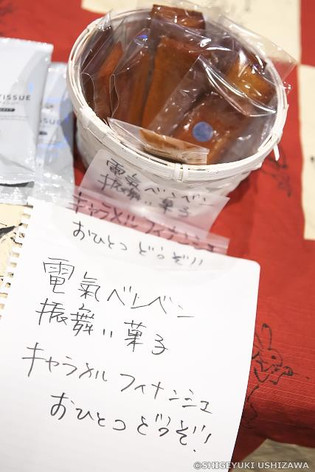 TISSUE
電氣ベンベン
振舞い菓子
キャラメルフィナンシェ
おひとつどうぞ!
電氣ベンベン
振舞い菓子
キャラメル フィナンシェ
おひとつどうぞ!
©SHIGEYUKI USHIZAWA